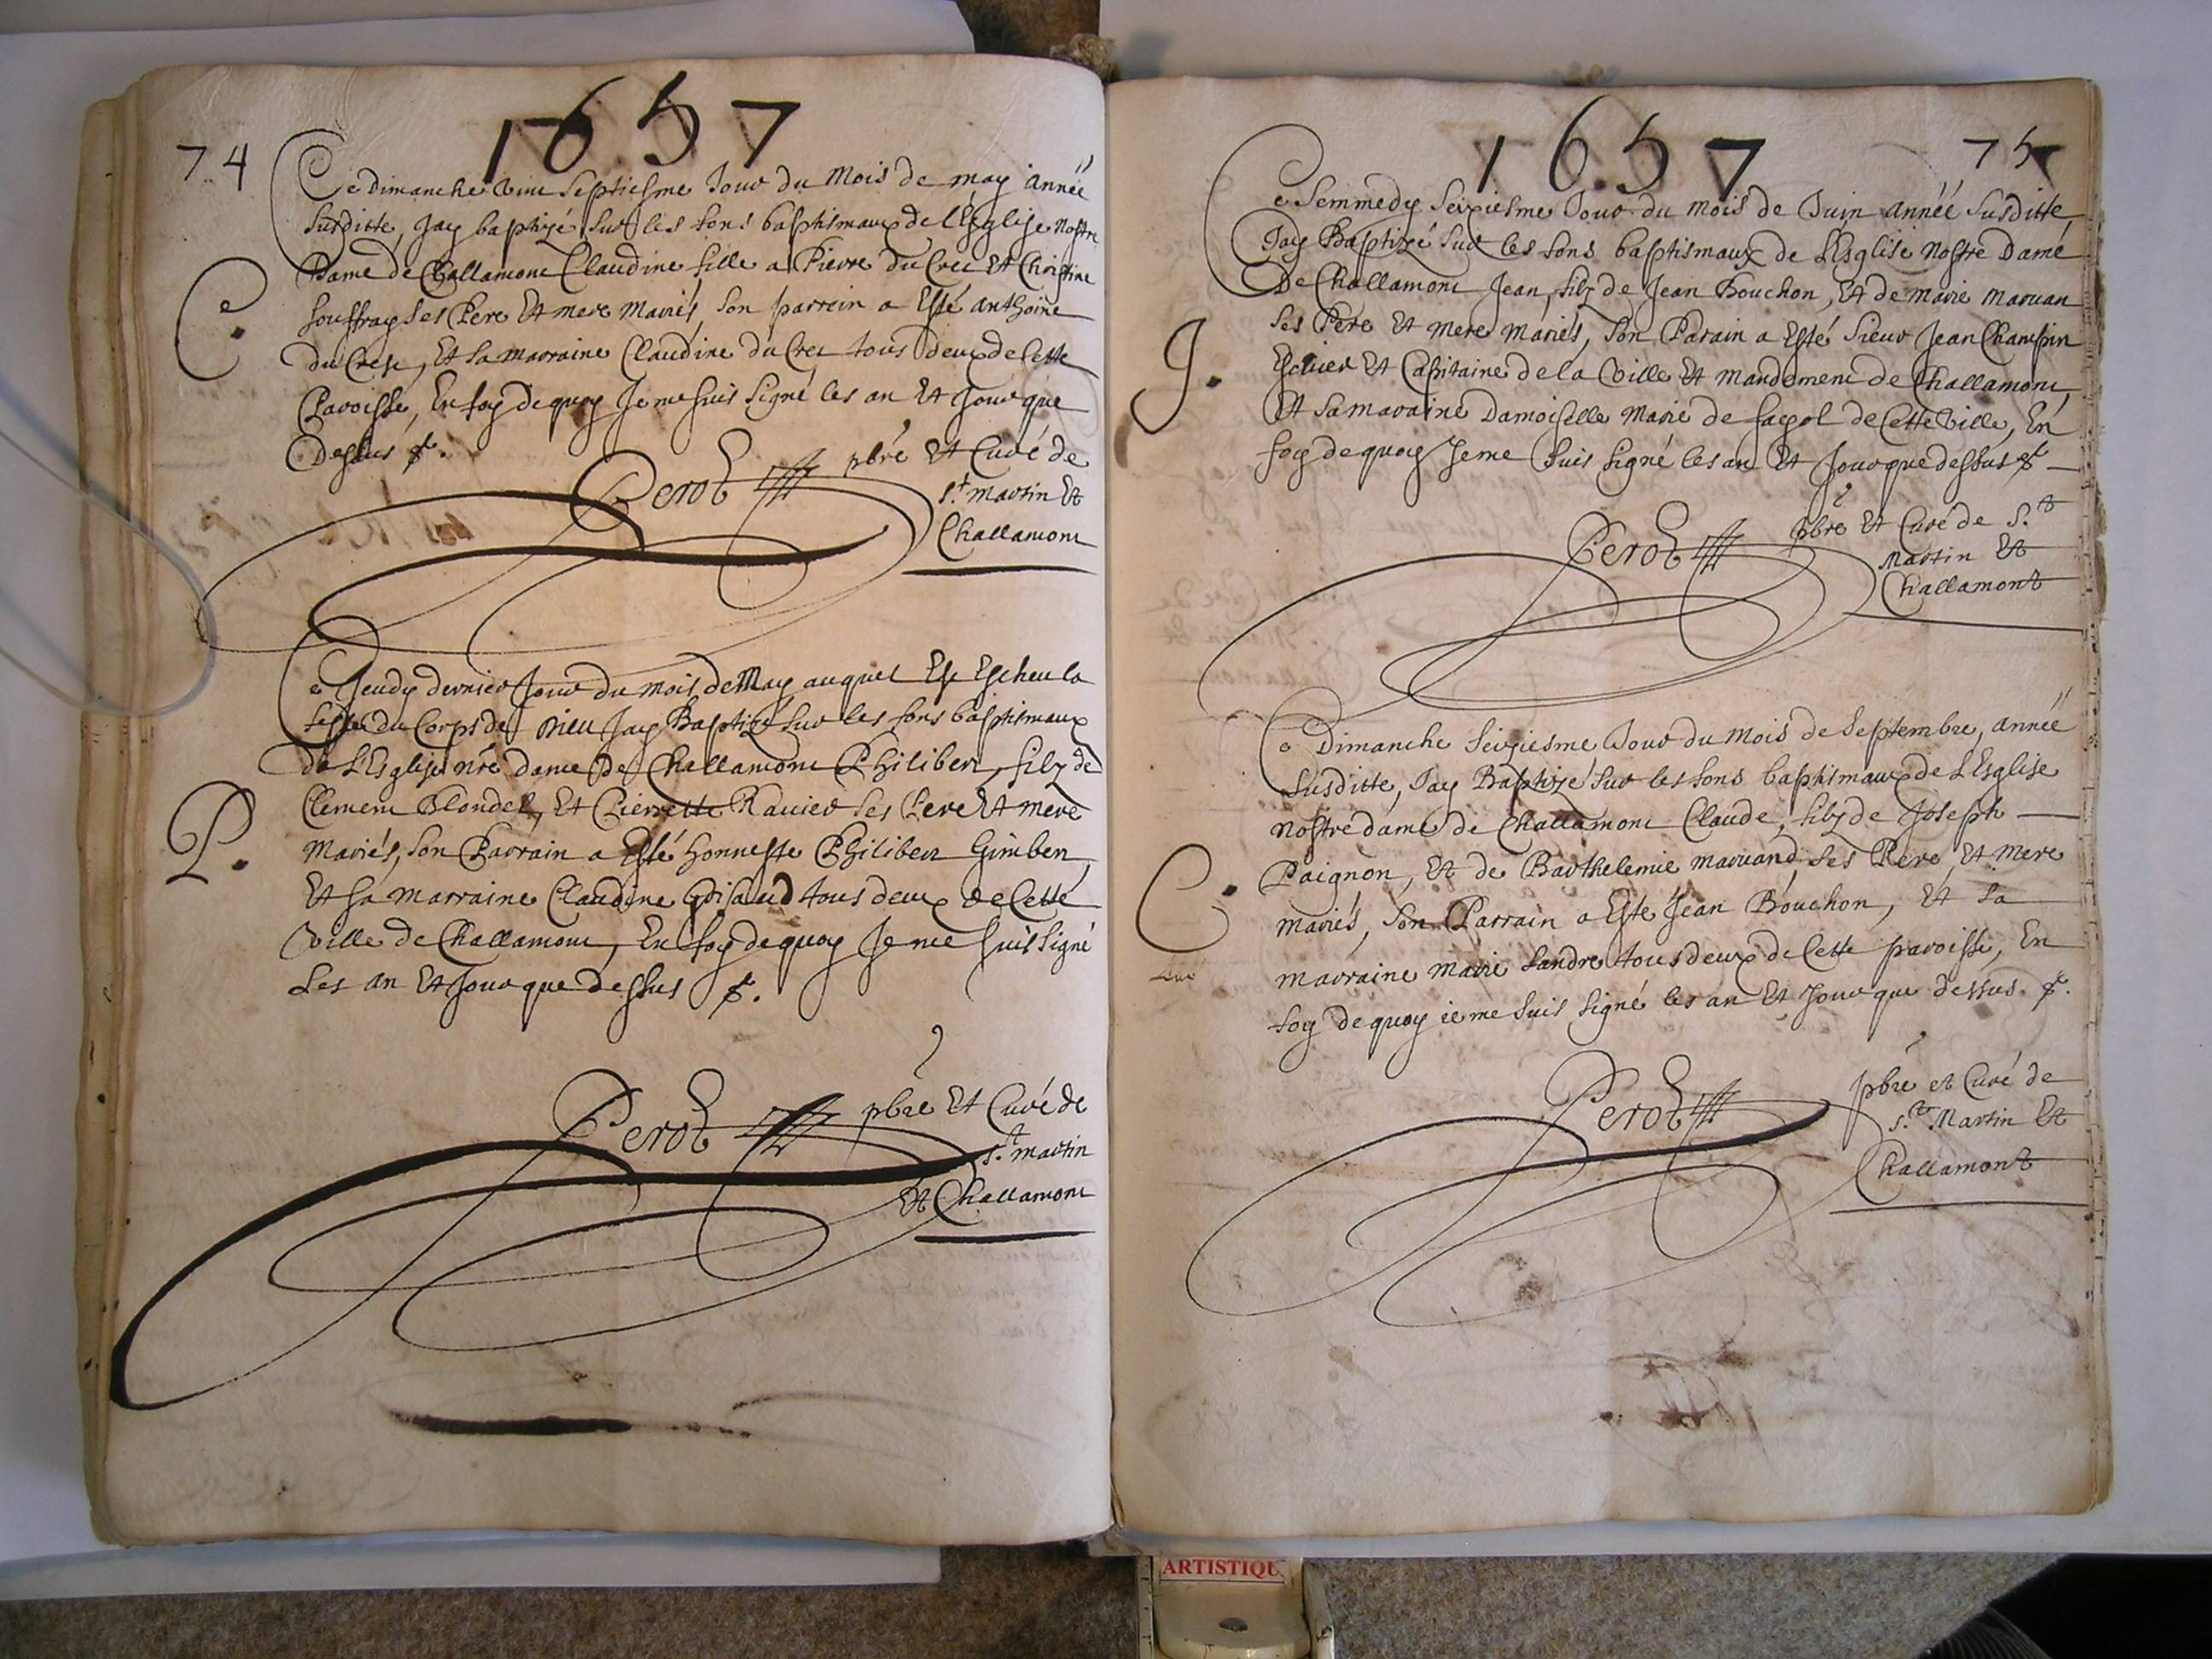 1657
74
Ce dimanche vint septiesme Jour du Mois de may Année
Susditte, Jay baptizé sur les fons baptismaux de l'Esglise Nostre
Dame de Challamont Claudine fille a Pierre du Cret Et Christine
souffray ses Pere Et mere Mariés, son parrein a Esté anthoine
du Cret, Et sa marraine Claudine du Cret tous deux de Cette
Paroisse, En foy de quoy Je me suis signé les an Et Jour que
Dessus
C.
Perot pbre Et Curé de
St martin Et
Challamont
Ce Jeudy dernier Jour du mois de May auquel Est Escheu la
feste du Corps de Dieu Jay Baptizé sur les fons baptismaux
de L'Esglise nre dame de Challamont Philibert, filz de
Clement Blondel, Et Pierrette Ravier ses Pere Et mere
Mariés, son Parrain a Esté honneste Philibert Gimbert,
Et sa marraine Claudine tous deux de Cette
Ville de Challamont, En foy de quoy Je me suis signé
Les an Et Jour que dessus
P.
Perot pbre Et Curé de
St martin
Et Challamont
1657
75
Ce Semmedy Seiziesme Jour du mois de Juin Année Susditte
Jay Baptizé sur les fons baptismaux de L'Esglise Nostre Dame
De Challamont Jean, filz de Jean Bouchon, Et de Marie Maruan
ses Pere Et mere Mariés, son Parain a Esté Sieur Jean Champin
Escuier Et Capitaine de la Ville Et mandement de Challamont,
Et sa maraine Damoiselle Marie de fagol de Cette Ville, En
foy de quoy Je me suis signé les an Et Jour que dessus
J.
Perot pbre Et Curé de St
Martin Et
Challamont
Ce Dimanche Seiziesme Jour du Mois de Septembre, Année
Susditte, Jay Baptizé sur les fons baptismaux de L'Esglise
Nostre dame de Challamont Claude, filz de Joseph
Paignon, Et de Barthelemie maruand ses Pere, Et Mere
mariés, son Parrain a Esté Jean Bouchon, Et sa
marraine marie Landre tous deux de Cette paroisse, En
foy de quoy ie me suis signé les an Et Jour que dessus.
C.
Perot pbre et Curé de
St Martin Et
Challamont
ARTISTIQU